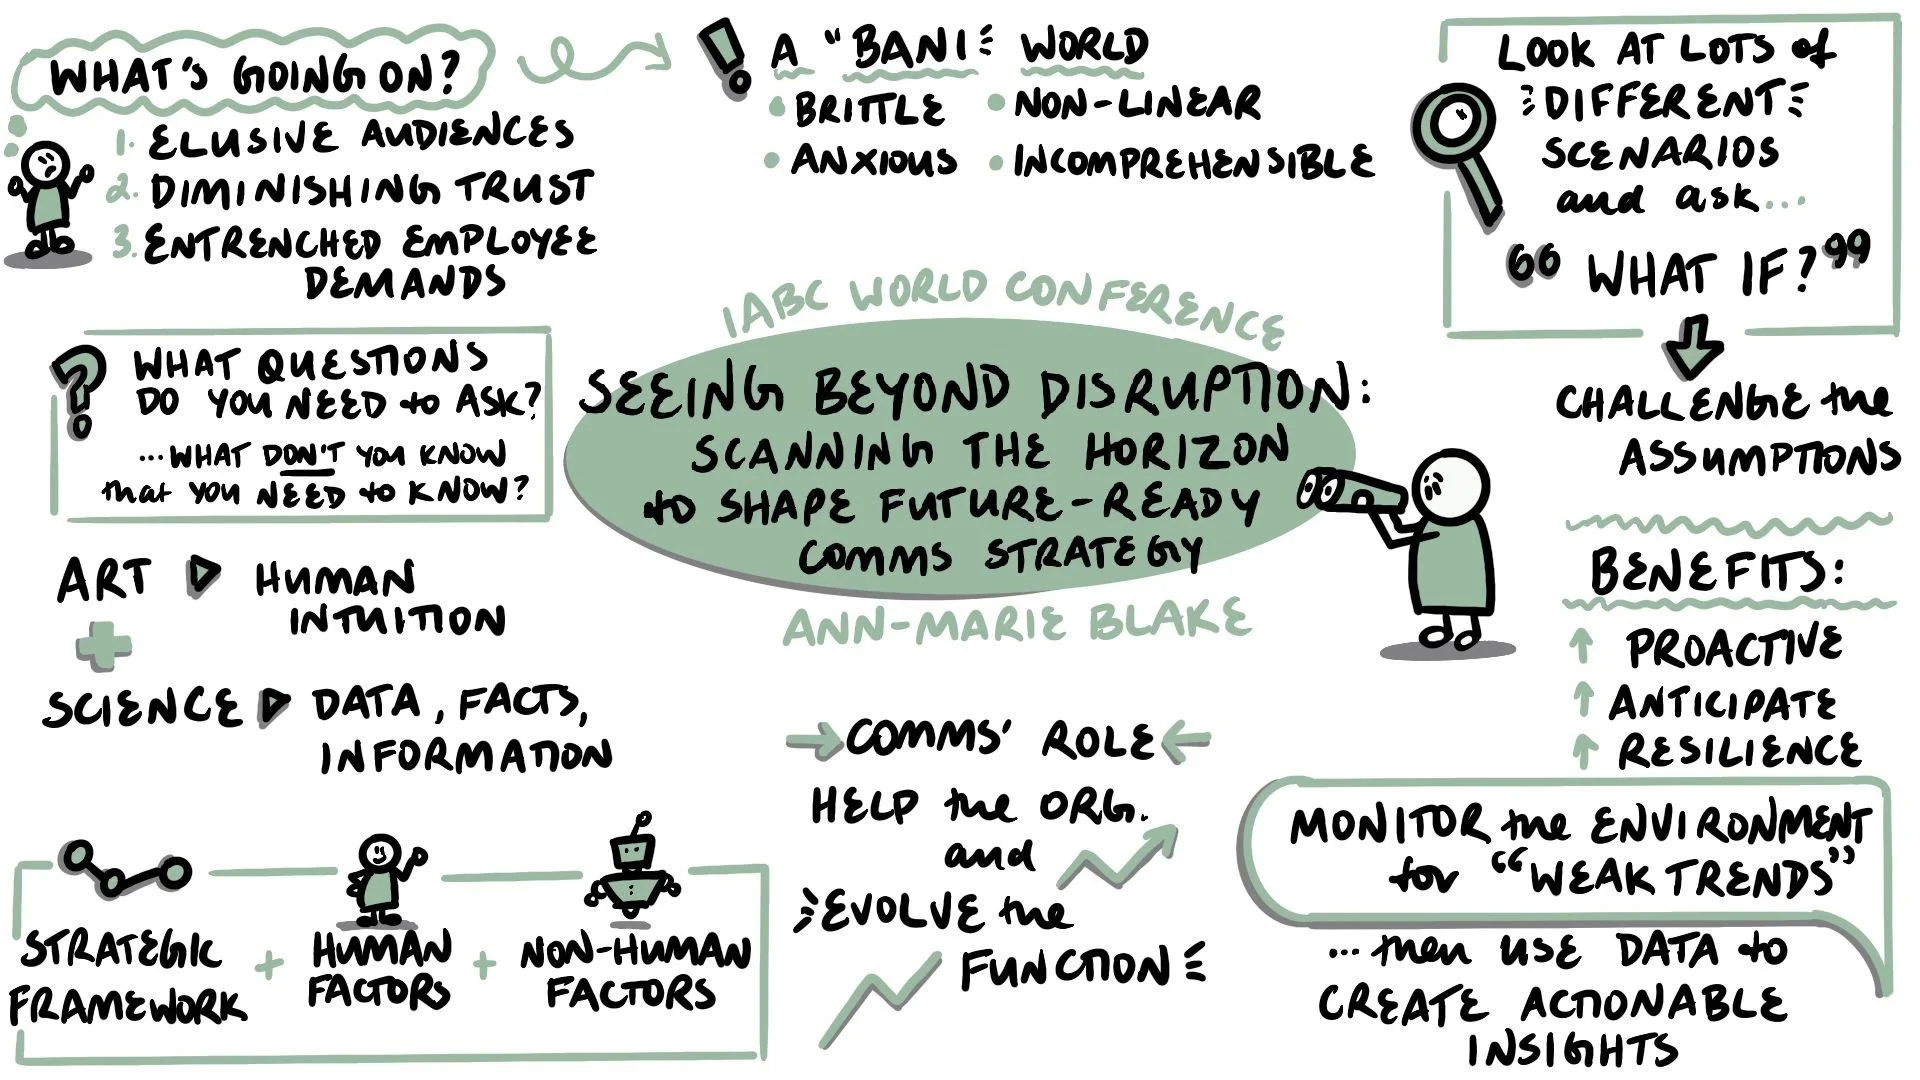 WHAT'S GOING ON?
1. ELUSIVE AUDIENCES
2. DIMINISHING TRUST
3. ENTRENCHED EMPLOYEE
DEMANDS
A "BANI" WORLD
• BRITTLE
• ANXIOUS
• NON-LINEAR
• INCOMPREHENSIBLE
LOOK AT LOTS of
DIFFERENT
SCENARIOS
and ask...
"WHAT IF?"
CHALLENGE the
ASSUMPTIONS
WHAT QUESTIONS
DO YOU NEED to ASK?
...WHAT DON'T YOU KNOW
that YOU NEED to KNOW?
IABC WORLD CONFERENCE
SEEING BEYOND DISRUPTION:
SCANNING THE HORIZON
to SHAPE FUTURE-READY
COMMS STRATEGY
ANN-MARIE BLAKE
BENEFITS:
↑ PROACTIVE
↑ ANTICIPATE
↑ RESILIENCE
ART ▷ HUMAN
INTUITION
+
SCIENCE ▷ DATA, FACTS,
INFORMATION
→ COMMS' ROLE ←
HELP the ORG.
and
EVOLVE the
FUNCTION
MONITOR the ENVIRONMENT
for "WEAK TRENDS"
...then USE DATA to
CREATE ACTIONABLE
INSIGHTS
STRATEGIC
FRAMEWORK
+
HUMAN
FACTORS
+
NON-HUMAN
FACTORS